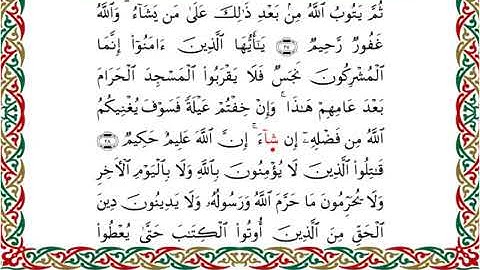 ثُمَّ يَتُوبُ ٱللَّهُ مِنۢ بَعْدِ ذَٰلِكَ عَلَىٰ مَن يَشَآءُ ۗ وَٱللَّهُ
غَفُورٌ رَّحِيمٌ ٢٧ يَـٰٓأَيُّهَا ٱلَّذِينَ ءَامَنُوٓا۟ إِنَّمَا
ٱلْمُشْرِكُونَ نَجَسٌ فَلَا يَقْرَبُوا۟ ٱلْمَسْجِدَ ٱلْحَرَامَ
بَعْدَ عَامِهِمْ هَـٰذَا ۚ وَإِنْ خِفْتُمْ عَيْلَةً فَسَوْفَ يُغْنِيكُمُ
ٱللَّهُ مِن فَضْلِهِۦٓ إِن شَآءَ ۚ إِنَّ ٱللَّهَ عَلِيمٌ حَكِيمٌ ٢٨
قَـٰتِلُوا۟ ٱلَّذِينَ لَا يُؤْمِنُونَ بِٱللَّهِ وَلَا بِٱلْيَوْمِ ٱلْـَٔاخِرِ
وَلَا يُحَرِّمُونَ مَا حَرَّمَ ٱللَّهُ وَرَسُولُهُۥ وَلَا يَدِينُونَ دِينَ
ٱلْحَقِّ مِنَ ٱلَّذِينَ أُوتُوا۟ ٱلْكِتَـٰبَ حَتَّىٰ يُعْطُوا۟